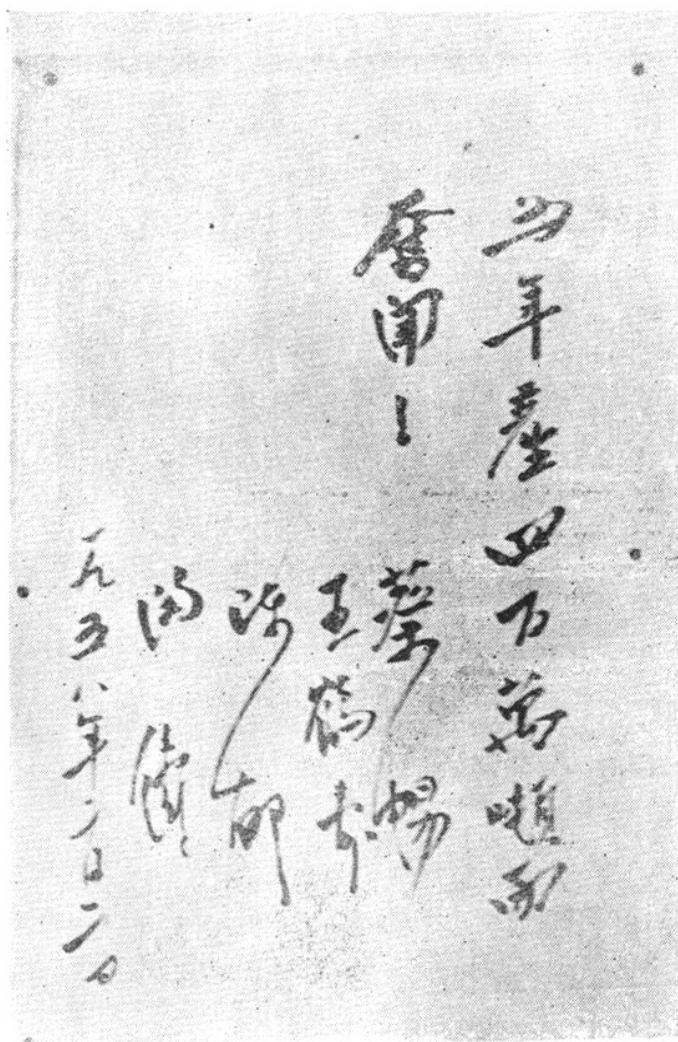 为年產四百萬噸而
奮鬥！
蔡暢
王鶴壽
陳郁
一九五八年二月二日